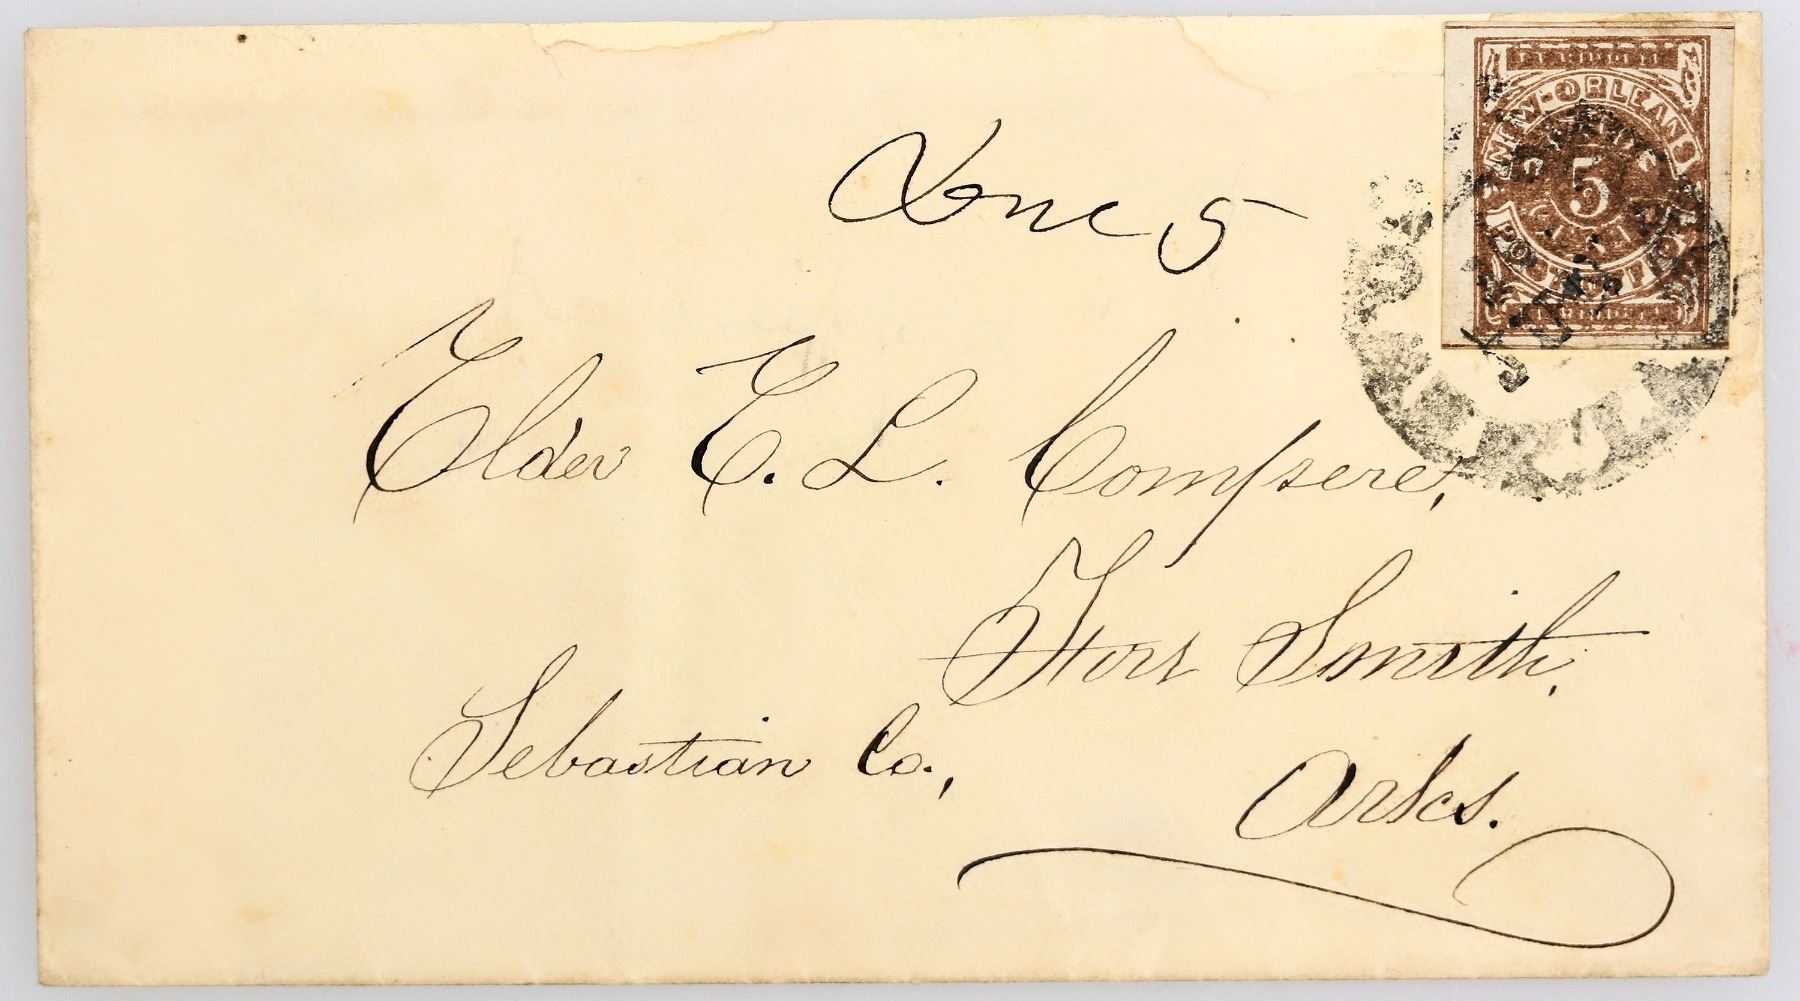 NEW-ORLEANS
5
CENTS
POST OFFICE
5
Elder E. L. Compere,
Fort Smith,
Sebastian Co.,
Arks.